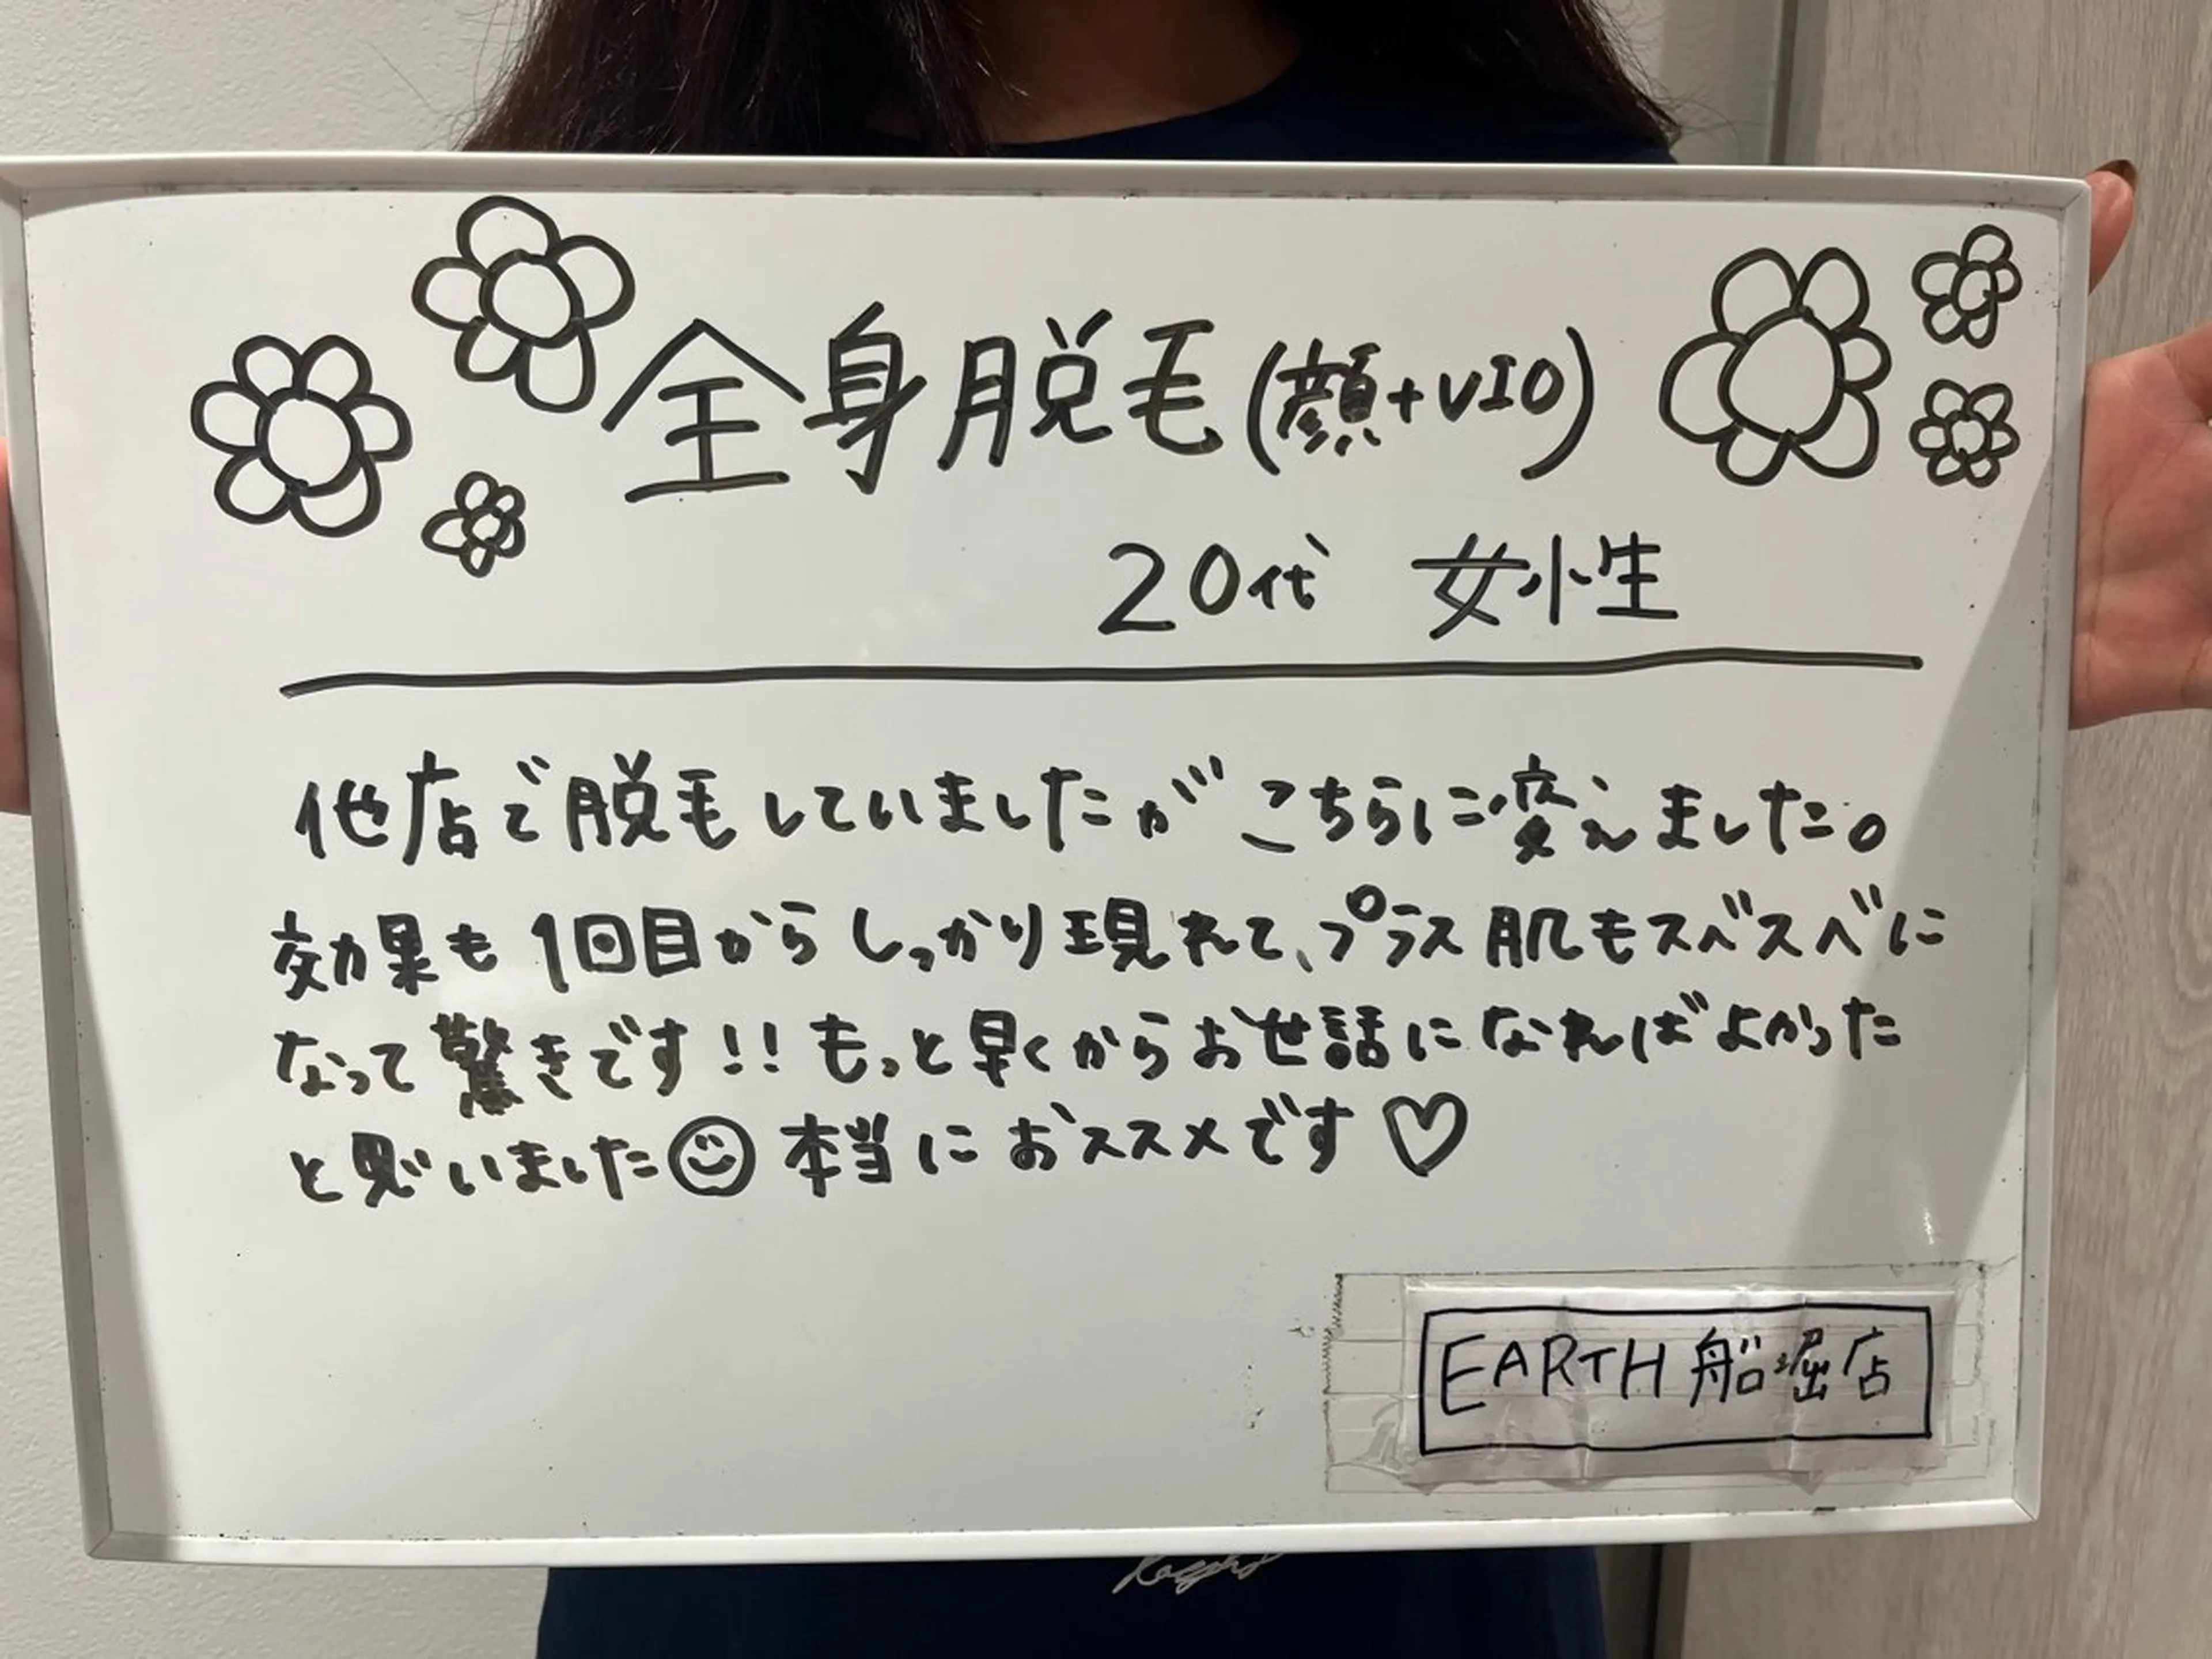 全身脱毛(顔+VIO)
20代 女性
他店で脱毛していましたがこちらに変えました。
効果も1回目からしっかり現れて、プラス肌もスベスベに
なって驚きです!!もっと早くからお世話になればよかった
と思いました 本当におススメです♡
EARTH 船堀店